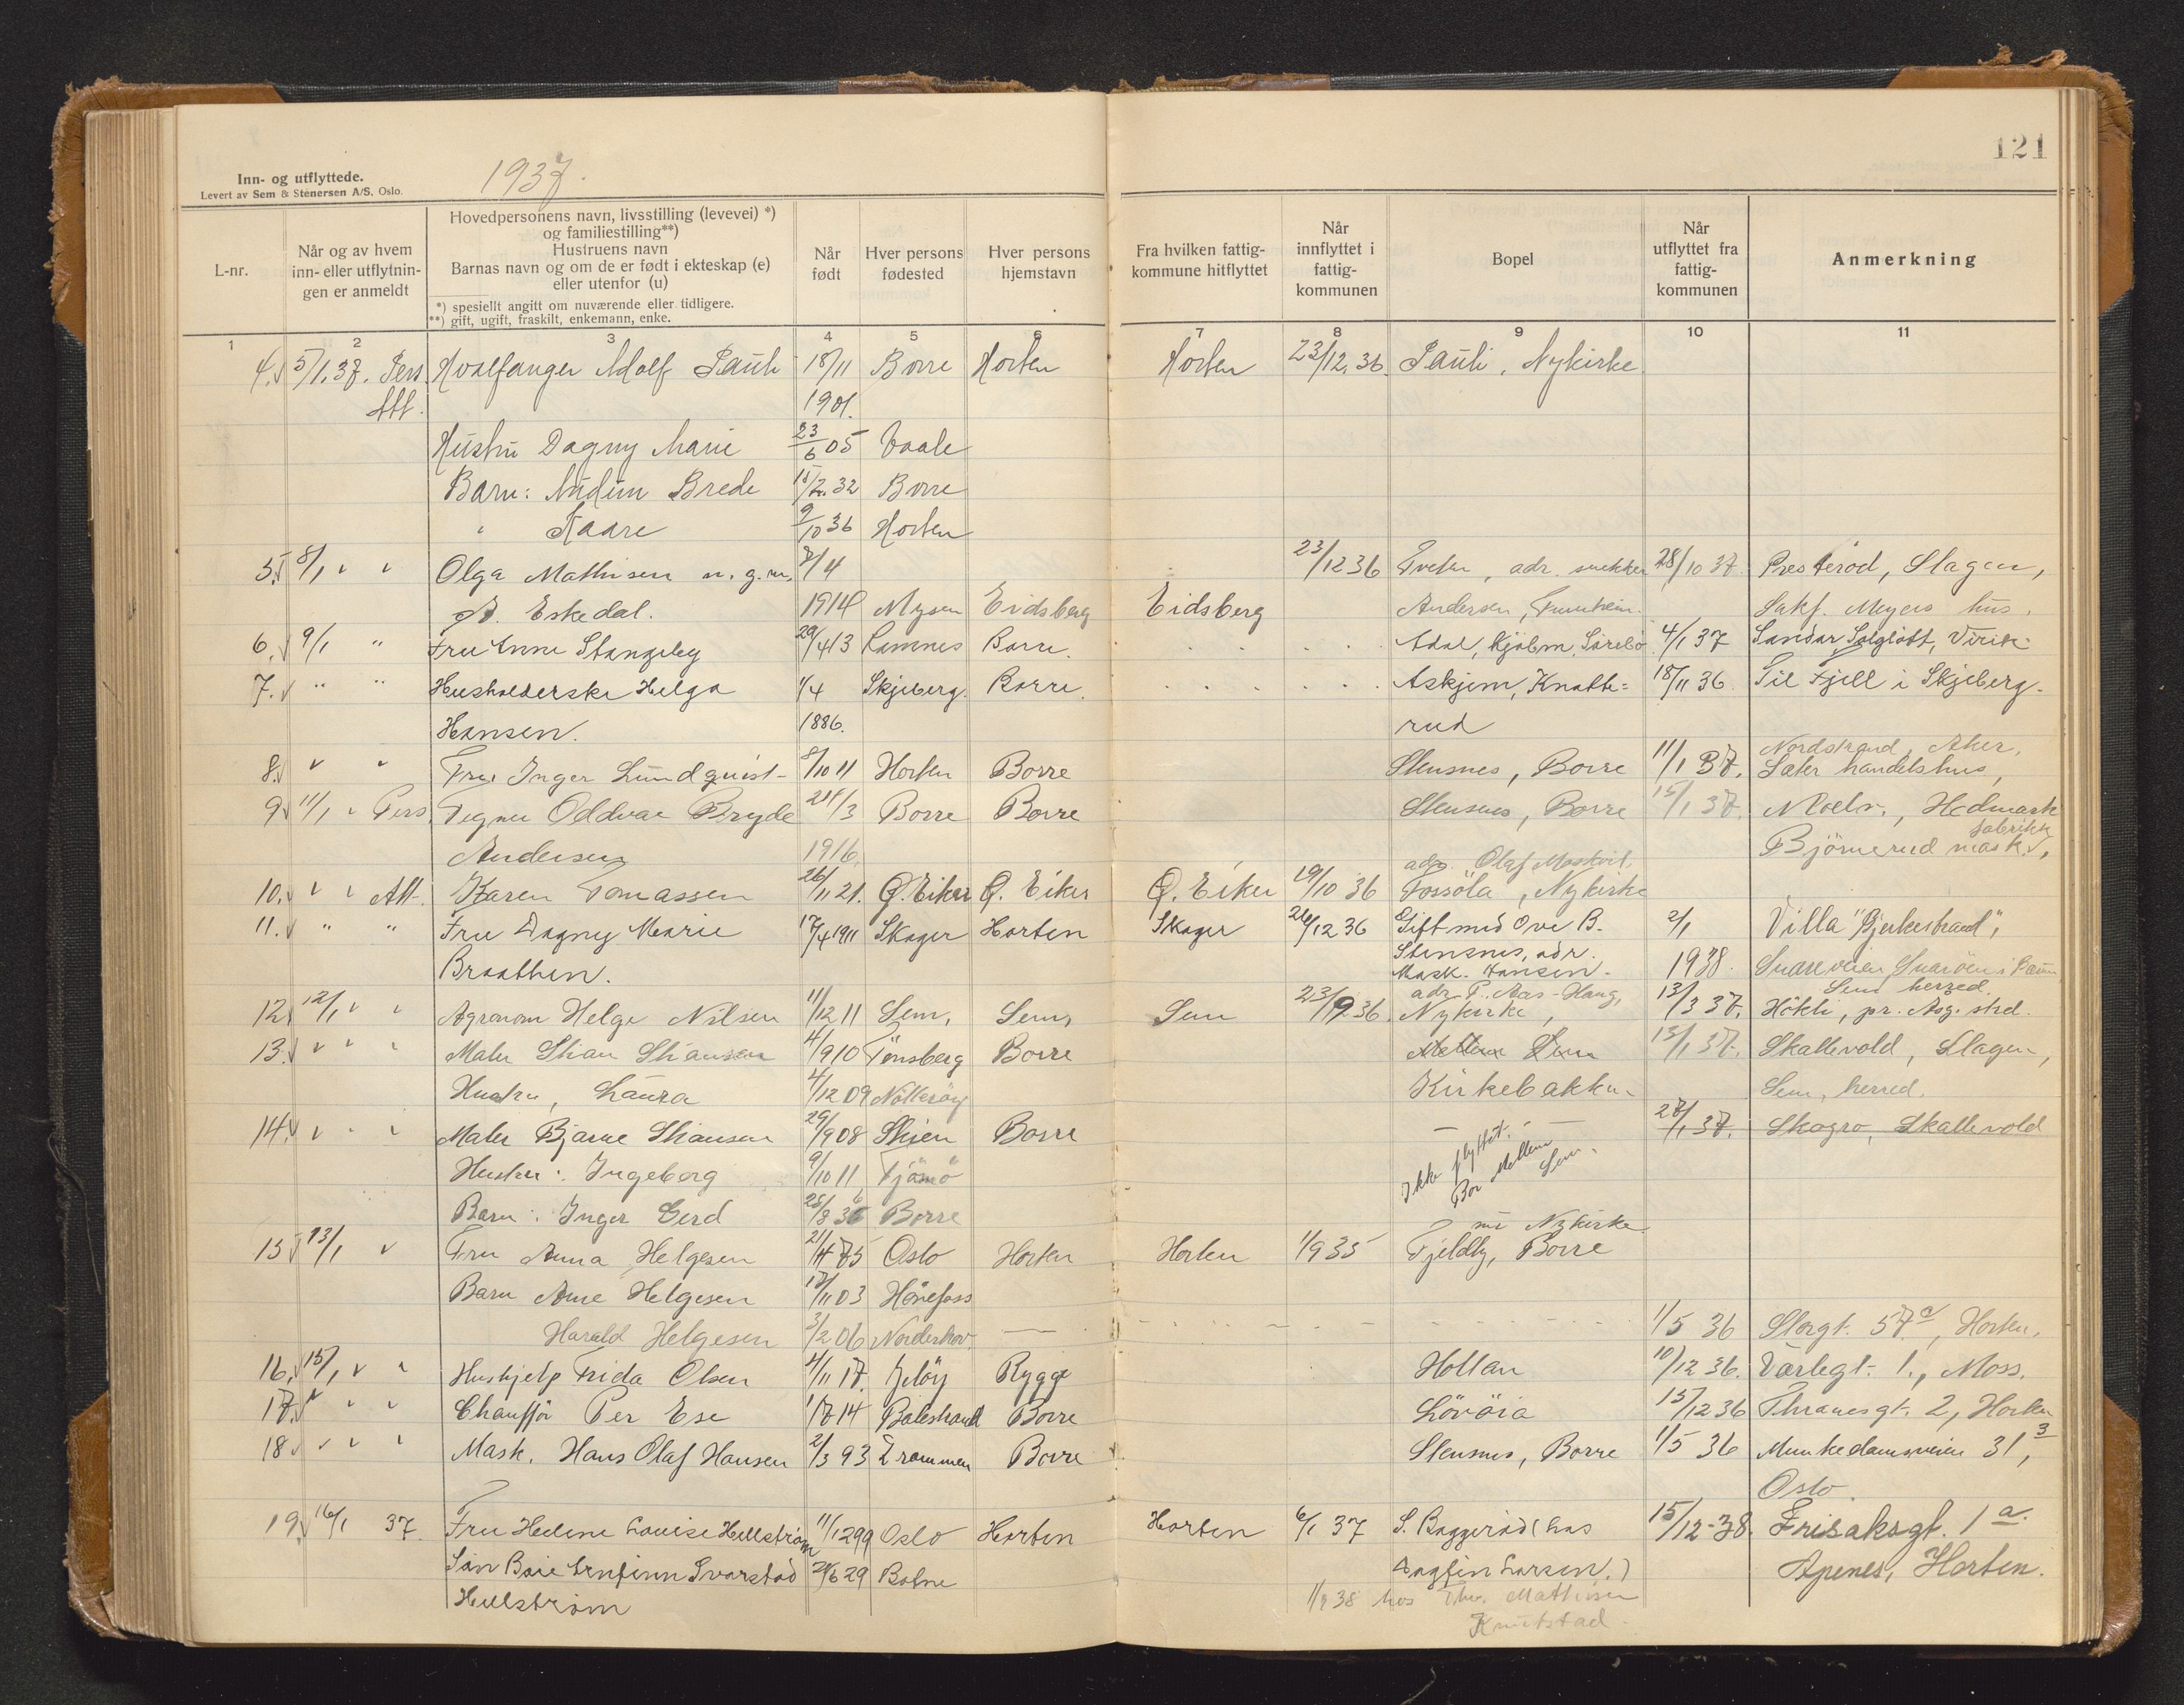 121
Inn- og utflyttede.
Levert av Sem & Stenersen A/S. Oslo.
1937.
L-nr.
Når og av hvem
inn- eller utflytnin-
gen er anmeldt
Hovedpersonens navn, livsstilling (levevei) *)
og familiestilling**)
Hustruens navn
Barnas navn og om de er født i ekteskap (e)
eller utenfor (u)
*) spesielt angitt om nuværende eller tidligere.
**) gift, ugift, fraskilt, enkemann, enke.
Når
født
Hver persons
fødested
Hver persons
hjemstavn
Fra hvilken fattig-
kommune hitflyttet
Når
innflyttet i
fattig-
kommunen
Bopel
Når
utflyttet fra
fattig-
kommunen
Anmerkning
1 2 3 4 5 6 7 8 9 10 11
4. 5/1.37. Pers. Hvalfanger Adolf Pauli 18/11 Borre Horten Horten 23/12.36. Pauli, Nykirke
Att. 1901.
Hustru Dagny Marie 23/6 05 Vaale
Barn: Audun Brede 15/2.32 Borre
" Kaare 9/10 36 Horten
5. 8/1 " " Olga Mathisen n. g. m. 8/4 23/12 36 Tveten, adr. snekker 28/10 37. Presterød, Slagen,
Eskedal. 1914 Mysen Eidsberg Eidsberg Andersen, Furuheim. Sakf. Meyers hus.
6. 9/1 " Fru Anne Stangeby 29/4 13 Ramnes Borre. Adal, Hjalm. Sørebø 4/1 37 Sandar, Solgløtt, Virik
7. " " Husholderske Helga 1/4 Skjeberg. Borre. Askjem, Knatte= 18/11 36. Til Fjell i Skjeberg.
Hansen. 1886. rud
Nordstrand, Aker,
8. " " Frue Inger Lundquist 8/10 11 Horten Borre Stensnes, Borre 11/1 37. Sæter handelshus,
9 11/1 " Pers. Tegner Oddvar Bryde 21/3 Borre Borre Stensnes, Borre 15/1 37. Moelv., Hedmark
Andersen 1916. Bjørnerud mask. fabrikk,
adr. Olaf Moskvil.
10. " " Att. Karen Tomassen 26/11 21. Ø. Eiker Ø. Eiker Ø. Eiker 19/10 36 Fossøla, Nykirke
11. " " Fru Dagny Marie 17/4 1911 Skoger Horten Skoger 26/12 36 Gift med Ove B. 2/1 Villa "Bjerkestrand",
Braathen. Stensnes, adr.
Mask. Hansen. 1938. Snareveien Snarøen i Bærum
adr. P. Aas-Haug, Sem herred.
12. 12/1 " " Agronom Helge Nilsen 11/12 11 Sem, Sem, Sem 23/9 36. Nykirke, 13/3 37. Høkli, pr. Åsg. strd.
13. " " " Maler Stian Stiansen 4/9 10 Tønsberg Borre 13/1 37. Skallevold, Slagen,
Hustru, Laura 4/12 09 Nøtterøy Kirkebakken Sem, herred.
14. " " " Maler Bjarne Stiansen 29/9 08 Skien Borre 27/1 37. Skogro, Skallevold
Hustru: Ingeborg 9/10 11 Tjømø Ikke flyttet.
Bor Mellem
Sem.
Barn: Inger Gerd 25/8 36 Borre
nr Nykirke
15 13/1 " Fru Anna Helgesen 21/4 75 Oslo Horten Horten 1/9 35 Fjeldly, Borre
Barn Arne Helgesen 17/11 03 Hønefoss
Harald Helgesen 3/2 06 Norderhov. 1/5 36 Storgt. 57 a, Horten.
16. 15/1 " " Hushjelp Frida Olsen 4/11 17. Jeløy Rygge Hollan 10/12 36. Varlegt. 1., Moss.
17. " " " Chauffør Per Ese 1/7 14 Balestrand Borre Løvøia 15/12 36 Thranesgt. 2, Horten
18 " " " Mask. Hans Olaf Hansen 2/3 93 Drammen Borre Stensnes, Borre 1/5 36 Munkedamsveien 31, 3
Oslo.
19. 16/1 37. Fru Helene Louise Hellstrøm 11/12 99 Oslo Horten Horten 6/1 37 S. Baggerød (hos 15/12-38. Frisaksgt. 1 a.
Søn Boie Arnfinn Svarstad 24/6 29 Botne Dagfin Larsen.) Apenes, Horten.
Hellstrøm
1/2 38 hos Thv. Mathisen
Knutstad.